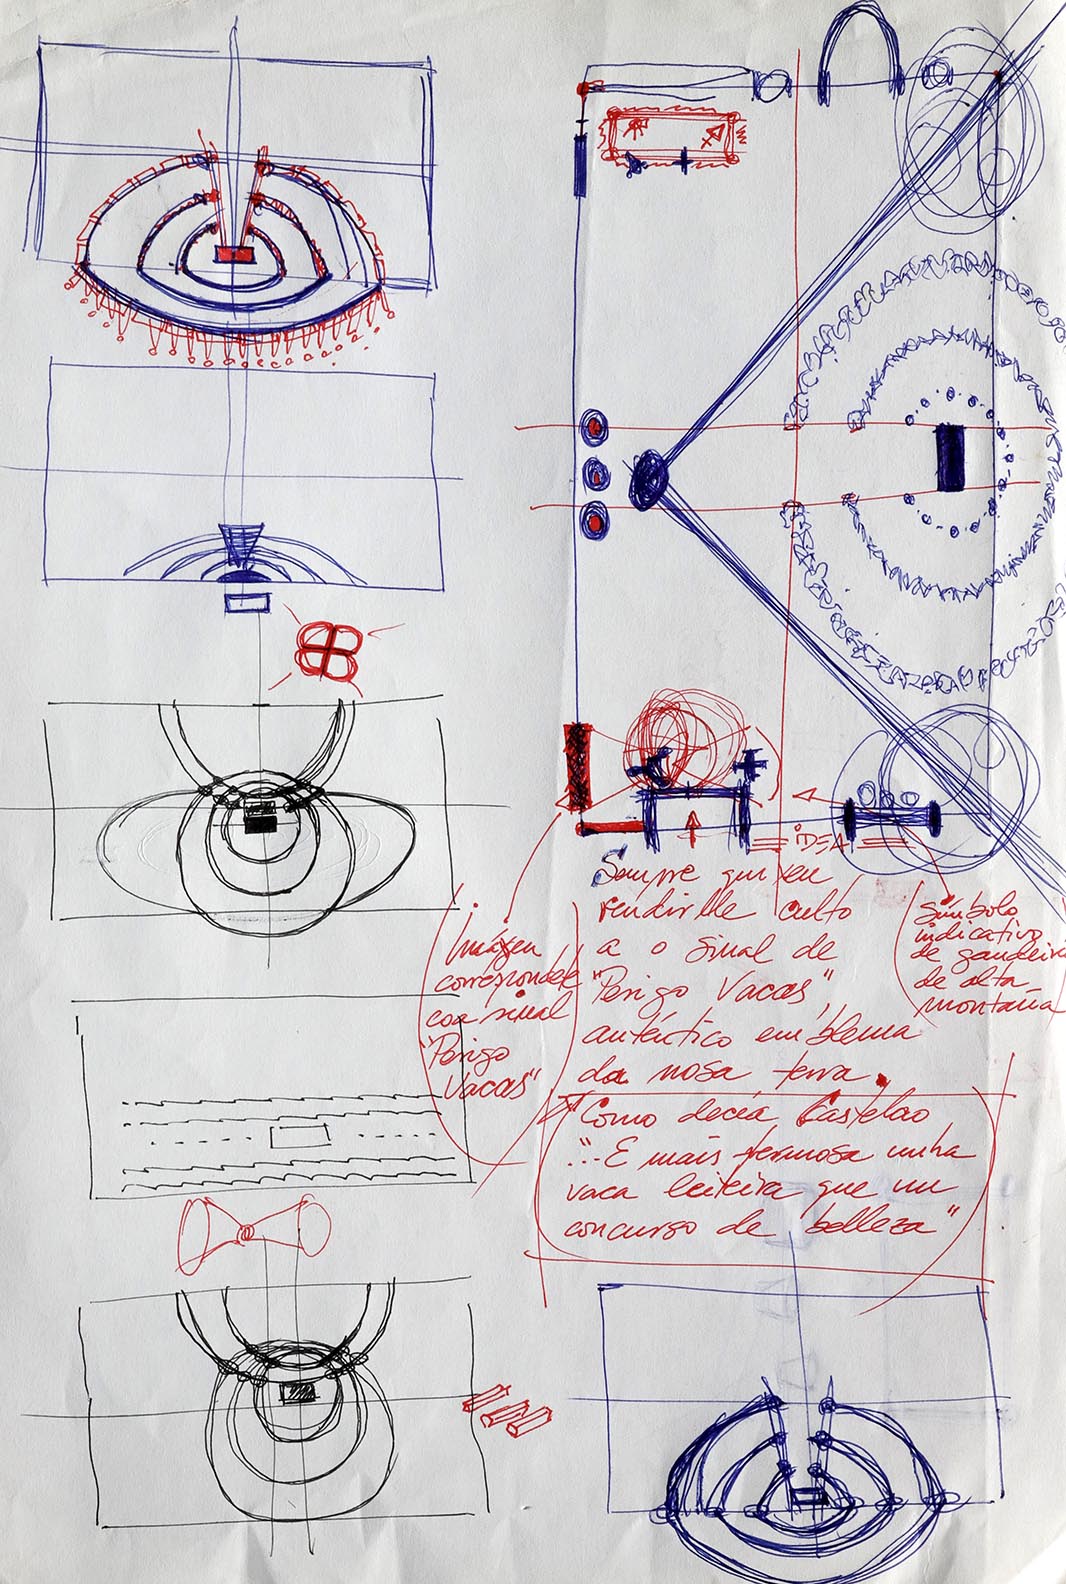 = IDEA =
Sempre quixen
rendirlle culto
a o sinal de
"Perigo Vacas",
auténtico emblema
da nosa terra.
Como decía Castelao
"... E mais fermosa unha
vaca leiteira que un
concurso de belleza"
Imáxen
correspondente
coa sinal
"Perigo
Vacas"
Símbolo
indicativo
de gandeiría
de alta
montaña